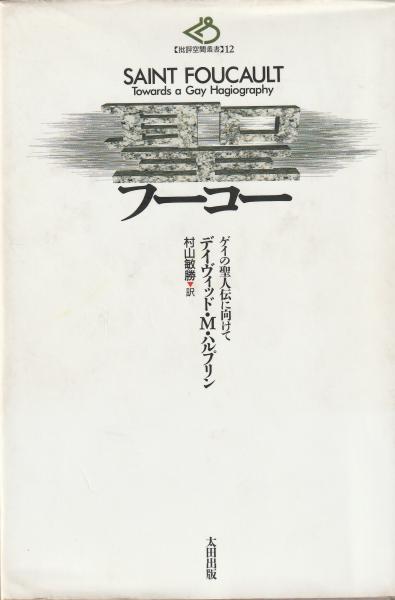 【批評空間叢書】12
SAINT FOUCAULT
Towards a Gay Hagiography
聖
フーコー
ゲイの聖人伝に向けて
デイヴィッド・M・ハルプリン
村山敏勝▼訳
太田出版